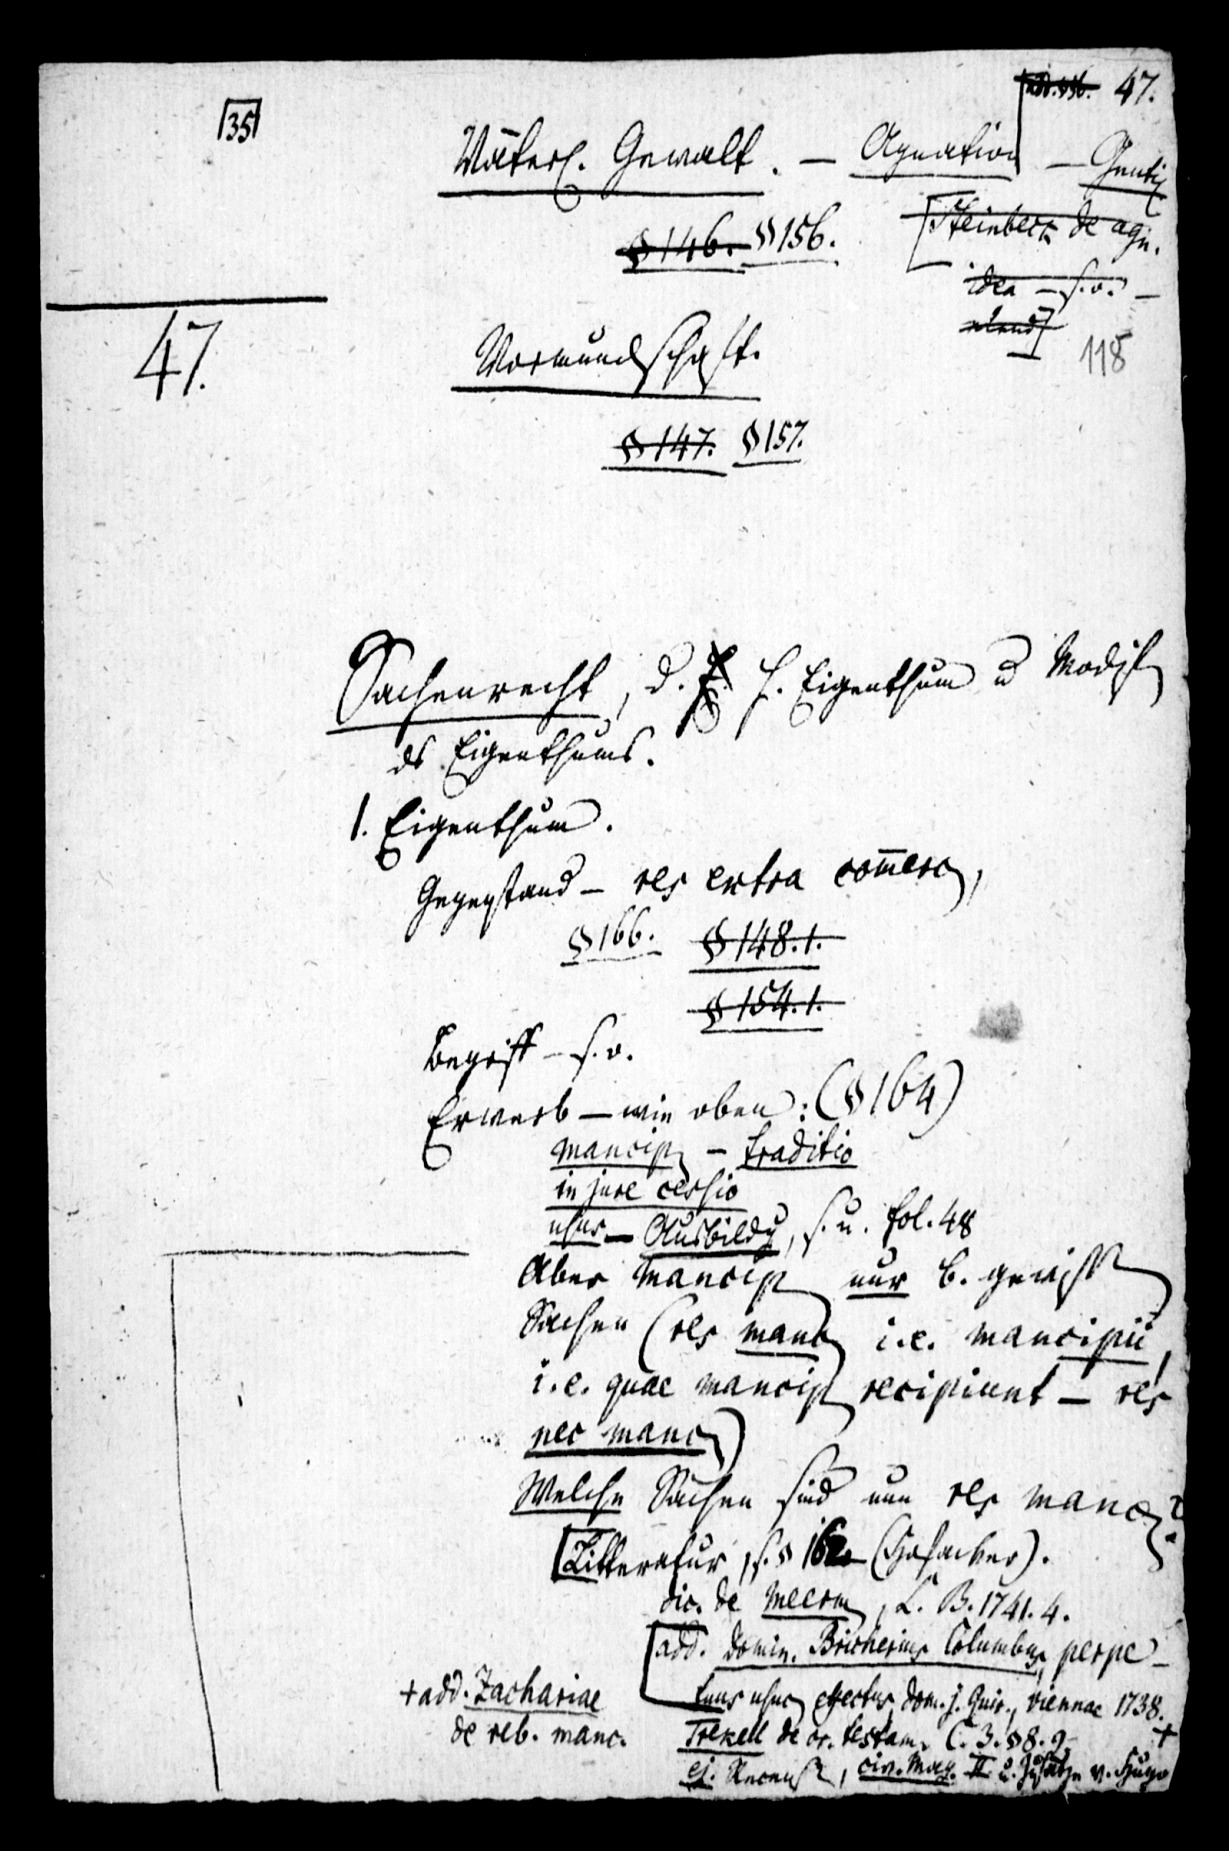 47.
35
Väterl. Gewalt. — Agnation — Gentil
§ 146. § 156.
[Steinbeck de agn.
idea — s. o. —
47.
118
Vormundschaft.
§ 147. § 157.
Sachenrecht, d. h. Eigenthum u Modif
ds Eigenthums.
1. Eigenthum.
Gegenstand — res extra com̄erc,
§ 166. § 148. 1.
§ 154. 1.
Begriff — s. o.
Erwerb — wie oben: (§ 164)
mancip — traditio
in jure cessio
usus — Ausbildg, s. u. fol. 48
Aber mancip nur b. gewiss
Sachen (res manc i. e. mancipii,
i. e. quae mancip recipiunt — res
nec manc)
Welche Sachen sind nun res manc?
[Litteratur, s. § 162 (Hofacker).
de Meerm, L. B. 1741. 4.
[add. domin. Bricherius Columbus, perpe-
tuus usuc effectus dom. j. Quir., Viennae 1738.
+ add. Zachariae
de reb. manc.
Trekell de or. testam. C. 3. § 8. 9. +
ej. Recens, civ. Mag. II u. Zusätze v. Hugo